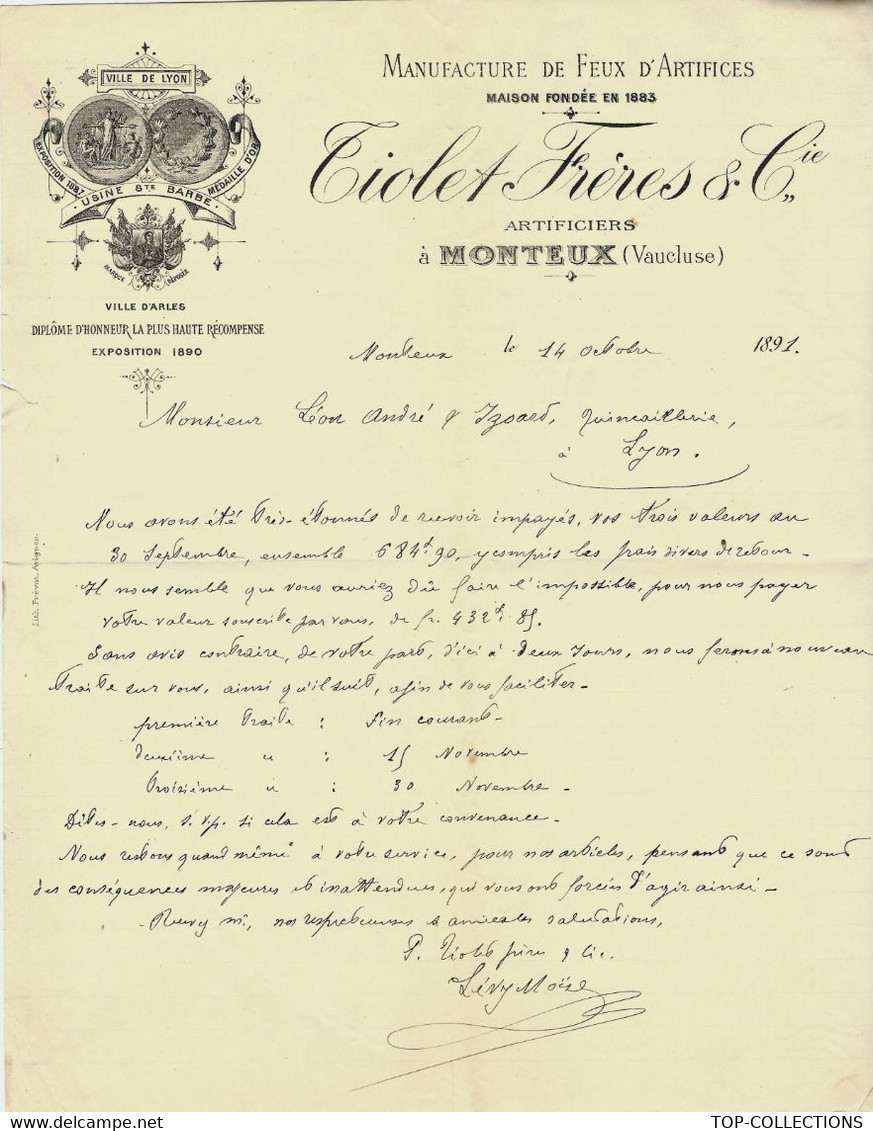 VILLE DE LYON
EXPOSITION 1887
MÉDAILLE D'OR
USINE STE BARBE
MARQUE DÉPOSÉE
VILLE D'ARLES
DIPLÔME D'HONNEUR LA PLUS HAUTE RÉCOMPENSE
EXPOSITION 1890
MANUFACTURE DE FEUX D'ARTIFICES
MAISON FONDÉE EN 1883
Tiolet Frères & Cie
ARTIFICIERS
à MONTEUX (Vaucluse)
Monteux le 14 octobre 1891.
Monsieur Léon André & Izoard, Quincaillerie,
à Lyon.
Nous avons été très-étonnés de recevoir impayés, vos trois valeurs au
30 Septembre, ensemble 684f.90, y compris les frais divers de retour.-
Il nous semble que vous auriez dû faire l'impossible, pour nous payer
votre valeur souscrite par vous, de fr. 432f.85.
Sans avis contraire, de votre part, d'ici à deux jours, nous ferons à nouveau
traite sur vous, ainsi qu'il suit, afin de vous faciliter-
première traite : fin courant-
deuxième " : 15 Novembre
troisième " : 30 Novembre -
Dites-nous, s.v.p. si cela est à votre convenance-
Nous restons quand même à votre service, pour nos articles, pensant que ce sont
des conséquences majeures et inattendues, qui vous ont forcés d'agir ainsi-
Recev mr, nos respectueuses & amicales salutations,
P. Tiolet frères & Cie.
Lévy Moïse
Lith. Prévot, Avignon.
TOP-COLLECTIONS